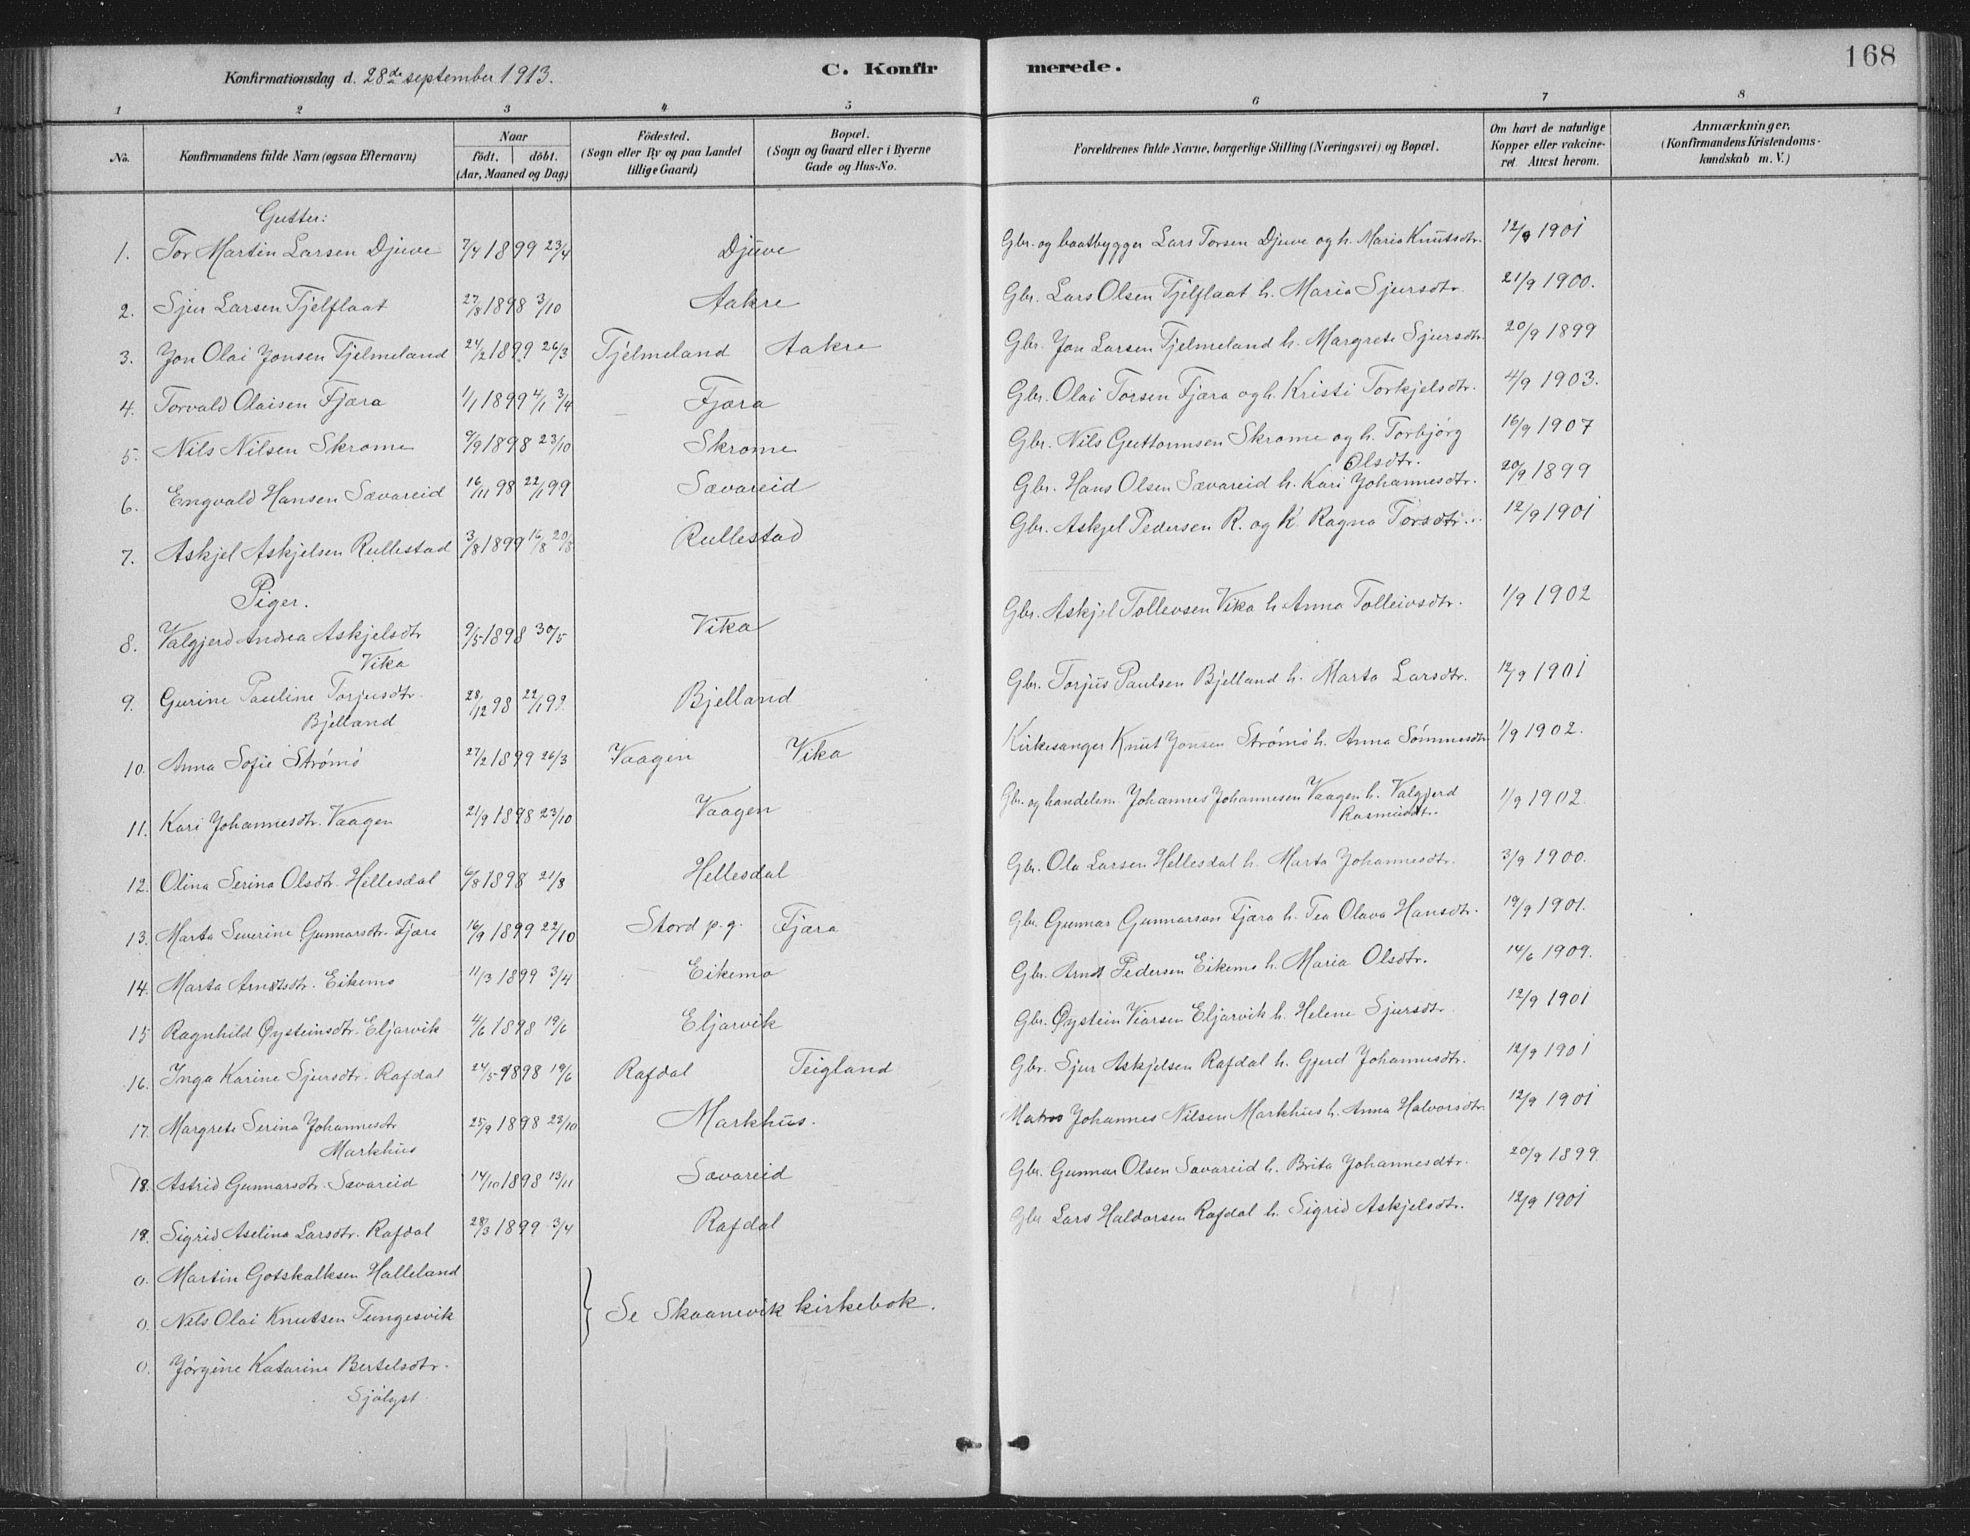 168
Konfirmationsdag d. 28de september 1913. C. Konfirmerede.
1 2 3 4 5 6 7 8
No. Konfirmandens fulde Navn (ogsaa Efternavn) Naar födt. döbt. (Aar, Maaned og Dag) Födested. (Sogn eller By og paa Landet tillige Gaard) Bopæl. (Sogn og Gaard eller i Byerne Gade og Hus-No. Forældrenes fulde Navne, borgerlige Stilling (Næringsvei) og Bopæl. Om havt de naturlige Kopper eller vakcineret. Attest herom. Anmærkninger. (Konfirmandens Kristendomskundskab m. V.)
Gutter:
1. Tor Martin Larsen Djuve 7/4 1899 23/4 Djuve Gbr. og baatbygger Lars Torsen Djuve og h. Maria Knutsdtr. 12/9 1901
2. Sjur Larsen Tjelflaat 27/8 1898 3/10 Aakre Gbr. Lars Olsen Tjelflaat h. Maria Sjursdtr. 21/9 1900.
3. Jon Olai Jonsen Tjelmeland 24/2 1899 26/3 Tjelmeland Aakre Gbr. Jon Larsen Tjelmeland h. Margrete Sjursdtr. 20/9 1899
4. Torvald Olaisen Fjæra 1/1 1899 4/1 3/4 Fjæra Gbr. Olai Torsen Fjæra og h. Kristi Torkjelsdtr. 4/9 1903.
5. Nils Nilsen Skrome 9/9 1898 23/10 Skrome Gbr. Nils Guttormsen Skrome og h. Torbjørg Olsdtr. 16/9 1907
6. Engvald Hansen Sævareid 16/11 98 22/1 99 Sævareid Gbr. Hans Olsen Sævareid h. Kari Johannesdtr. 20/9 1899
7. Askjel Askjelsen Rullestad 3/8 1899 16/8 20/8 Rullestad Gbr. Askjel Pedersen R. og K. Ragna Torsdtr. 12/9 1901
Piger.
8. Valgjerd Andrea Askjelsdtr Vika 9/5 1898 30/5 Vika Gbr. Askjel Tollevsen Vika h. Anna Tolleivsdtr. 1/9 1902
9. Gurine Pauline Torjusdtr. Bjelland 28/12 98 22/1 99. Bjelland Gbr. Torjus Paulsen Bjelland h. Marta Larsdtr. 12/9 1901
10. Anna Sofie Strømø 27/2 1899 26/3 Vaagen Vika Kirkesanger Knut Jonsen Strømø h. Anna Sømmesdtr 1/9 1902.
11. Kari Johannesdtr. Vaagen 21/9 1898 23/10 Vaagen Gbr. og handelsm. Johannes Johannesen Vaagen h. Valgjerd Rasmusdtr. 1/9 1902
12. Olina Serina Olsdtr. Hellesdal 6/8 1898 21/8 Hellesdal Gbr. Ola Larsen Hellesdal h. Marta Johannesdtr. 3/9 1900.
13. Marta Severine Gunnarsdtr. Fjæra 16/9 1899 22/10 Stord p.g. Fjæra Gbr. Gunnar Gunnarson Fjæra h. Tea Olava Hansdtr. 19/9 1901.
14. Marta Arndtsdtr. Eikemo 11/3 1899 3/4 Eikemo Gbr. Arndt Pedersen Eikemo h. Maria Olsdtr. 14/6 1909.
15 Ragnhild Øysteinsdtr. Eljarvik 4/6 1898 19/6 Eljarvik Gbr. Øystein Viarsen Eljarvik h. Helene Sjursdtr. 12/9 1901
16. Inga Karine Sjursdtr. Rafdal 24/5 1898 19/6 Rafdal Teigland Gbr. Sjur Askjelsen Rafdal h. Gjerd Johannesdtr. 12/9 1901
17. Margrete Serina Johannesdtr Markhus 25/9 1898 23/10 Markhus. Matros Johannes Nilsen Markhus h. Anna Halvorsdtr. 12/9 1901
18. Astrid Gunnarsdtr. Sævareid 14/10 1898 13/11 Sævareid Gbr. Gunnar Olsen Sævareid h. Brita Johannesdtr. 20/9 1899.
19. Sigrid Aselina Larsdtr. Rafdal 28/3 1899 3/4 Rafdal Gbr Lars Haldorsen Rafdal h. Sigrid Askjelsdtr. 12/9 1901
0. Martin Gotskalksen Halleland
0. Nils Olai Knutsen Tungesvik } Se Skaanevik kirkebok.
0. Jørgine Katarine Bertelsdtr. Sjølyst.